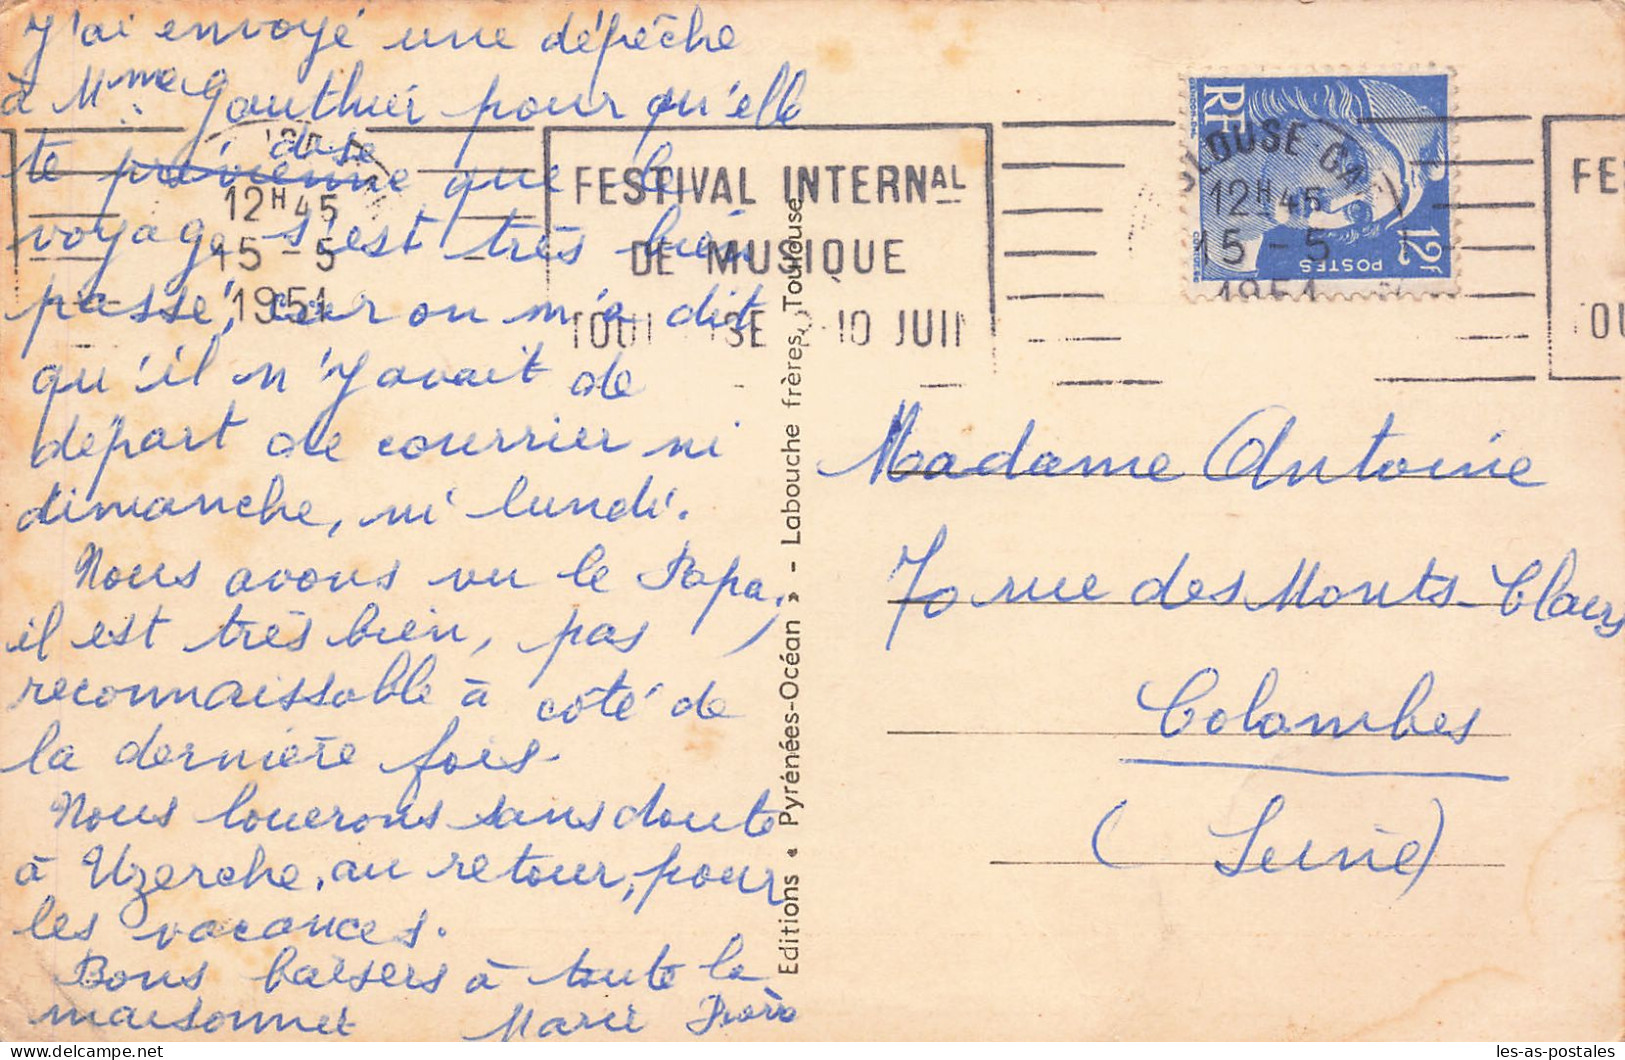 J'ai envoyé une dépêche
à Mme Gauthier pour qu'elle
te prévienne dise que le
voyage s'est très bien
passé, car on m'a dit
qu'il n'y avait de
départ de courrier ni
dimanche, ni lundi.
Nous avons vu le Papa,
il est très bien, pas
reconnaissable à côté de
la dernière fois.
Nous louerons sans doute
à Uzerche, au retour, pour
les vacances.
Bons baisers à toute la
maisonnée Marie
12H45
15-5
1951
FESTIVAL INTERNAL
DE MUSIQUE
-10 JUIN
RF
POSTES
12F
LOUSE-GA
12H45
15-5
1951
FES
Editions « Pyrénées-Océan » - Labouche frères, Toulouse
Madame Antoine
70 rue des Monts-Clairs
Colombes
(Seine)
les-as-postales
delcampe.net